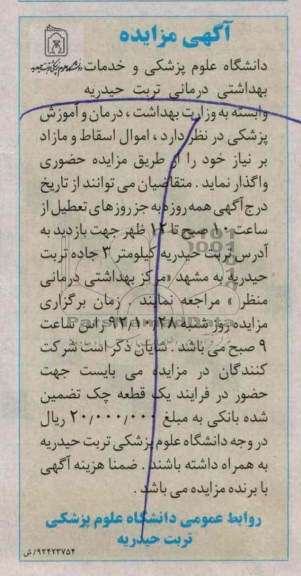 آگهی مزایده
دانشگاه علوم پزشکی و خدمات
بهداشتی درمانی تربت حیدریه
وابسته به وزارت بهداشت ، درمان و آموزش
پزشکی در نظر دارد ، اموال اسقاط و مازاد
بر نیاز خود را از طریق مزایده حضوری
واگذار نماید . متقاضیان می توانند از تاریخ
درج آگهی همه روزه به جز روزهای تعطیل از
ساعت ۱۰ صبح تا ۱۲ ظهر جهت بازدید به
آدرس تربت حیدریه کیلومتر ۳ جاده تربت
حیدریه به مشهد «مرکز بهداشتی درمانی
منظر » مراجعه نمایند . زمان برگزاری
مزایده روز شنبه ۹۲/۱۰/۲۸ راس ساعت
۹ صبح می باشد . شایان ذکر است شرکت
کنندگان در مزایده می بایست جهت
حضور در فرایند یک قطعه چک تضمین
شده بانکی به مبلغ ۲۰/۰۰۰/۰۰۰ ریال
در وجه دانشگاه علوم پزشکی تربت حیدریه
به همراه داشته باشند . ضمنا هزینه آگهی
با برنده مزایده می باشد .
روابط عمومی دانشگاه علوم پزشکی
تربت حیدریه
۹۲۴۲۳۷۵۴/ش